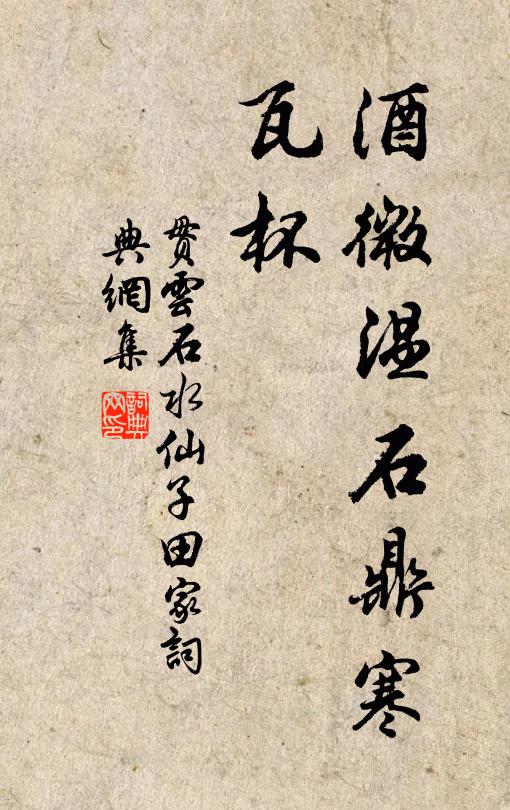 酒微温石鼎寒
瓦杯
贯雲石水仙子田家詞
典網集
詞典網印